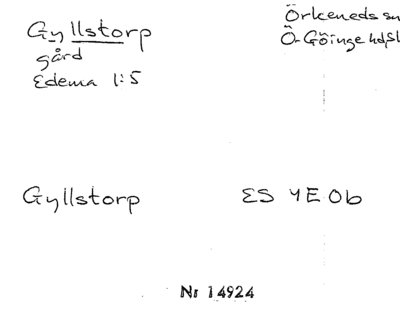 Gyllstorp
gård
Edema 1:5
Örkeneds sn
Ö. Göinge hd
Gyllstorp ES 4E Ob
Nr 14924